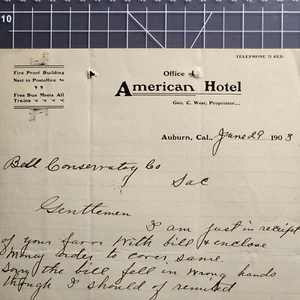 10
TELEPHONE 71 RED
Fire Proof Building
Next to Postoffice
Free Buss Meets All
Trains
Office of
American Hotel
Geo. C. West, Proprietor
Auburn, Cal., June 29 1903
Bell Conservatory Co
Sac
Gentlemen
I am just in receipt
of your favor with bill & enclose
Money order to cover same.
Sorry the bill fell in wrong hands
though I should of remited